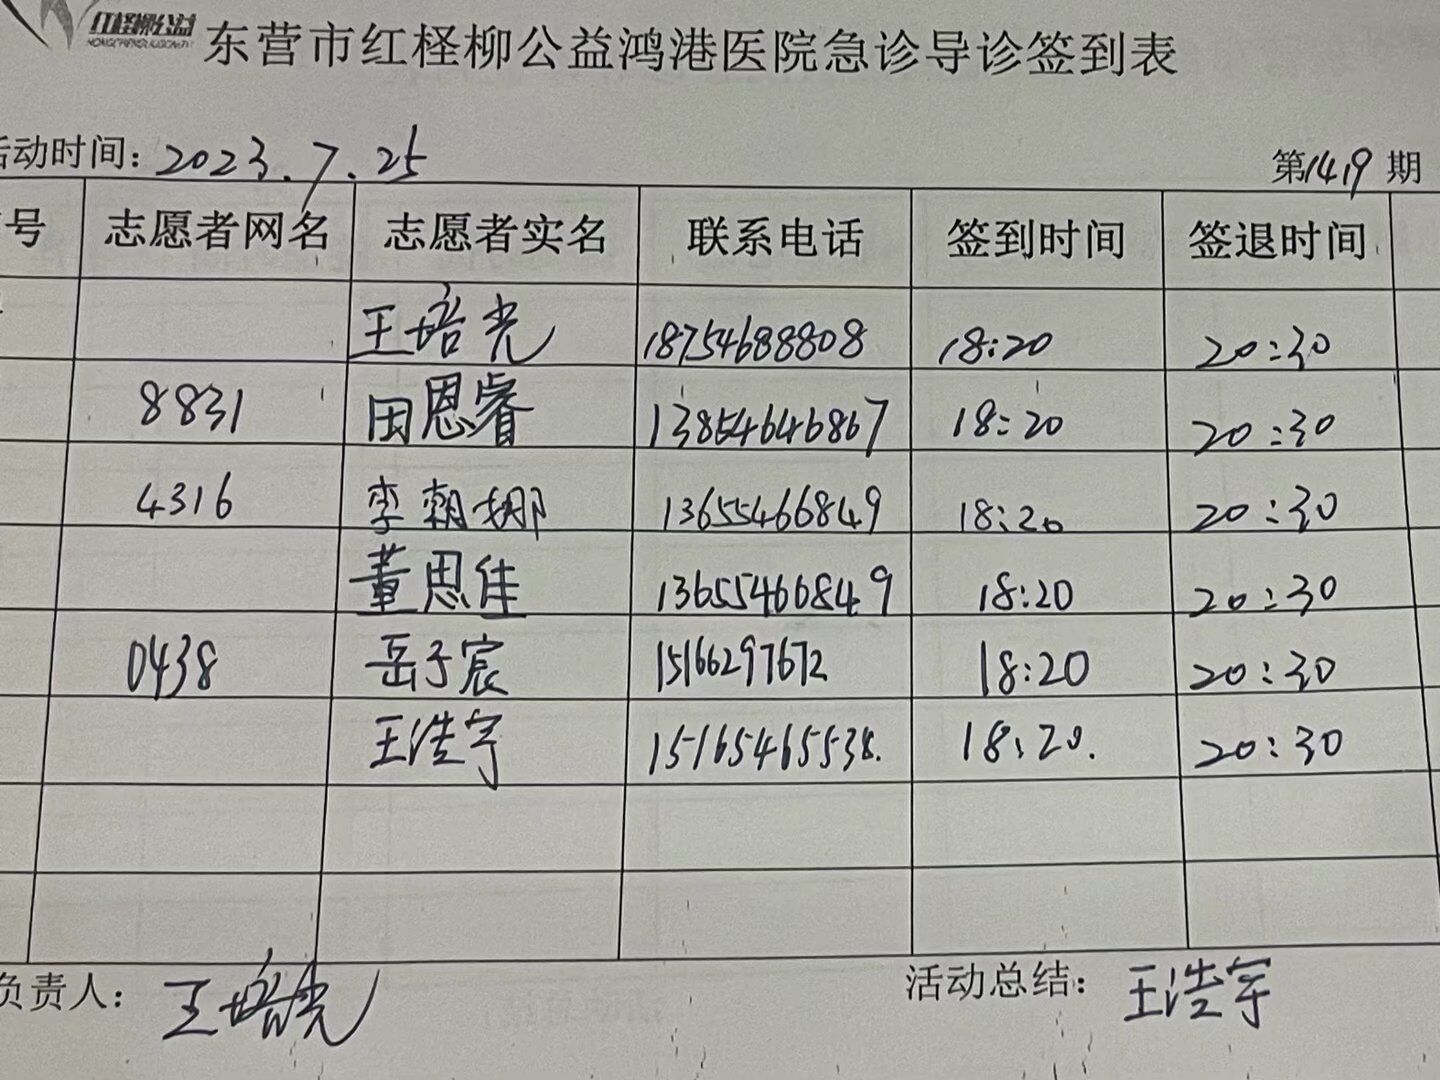 红柽柳公益
东营市红柽柳公益鸿港医院急诊导诊签到表
活动时间：2023.7.25 第1419期
号 志愿者网名 志愿者实名 联系电话 签到时间 签退时间
王培光 18754688808 18:20 20:30
8831 田恩睿 13854646867 18:20 20:30
4316 李朝娜 13655466849 18:20 20:30
董思佳 13655466849 18:20 20:30
0438 岳子宸 15166297672 18:20 20:30
王浩宇 15165465538. 18:20. 20:30
负责人：王培光 活动总结：王浩宇